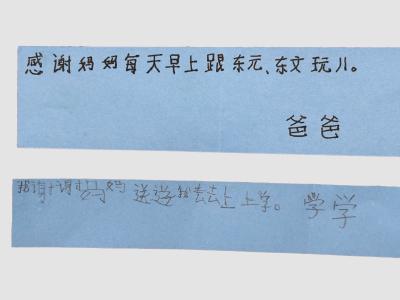 感谢妈妈每天早上跟东元、东文玩儿。
爸爸
谢谢妈妈送送我去去上上学。学学